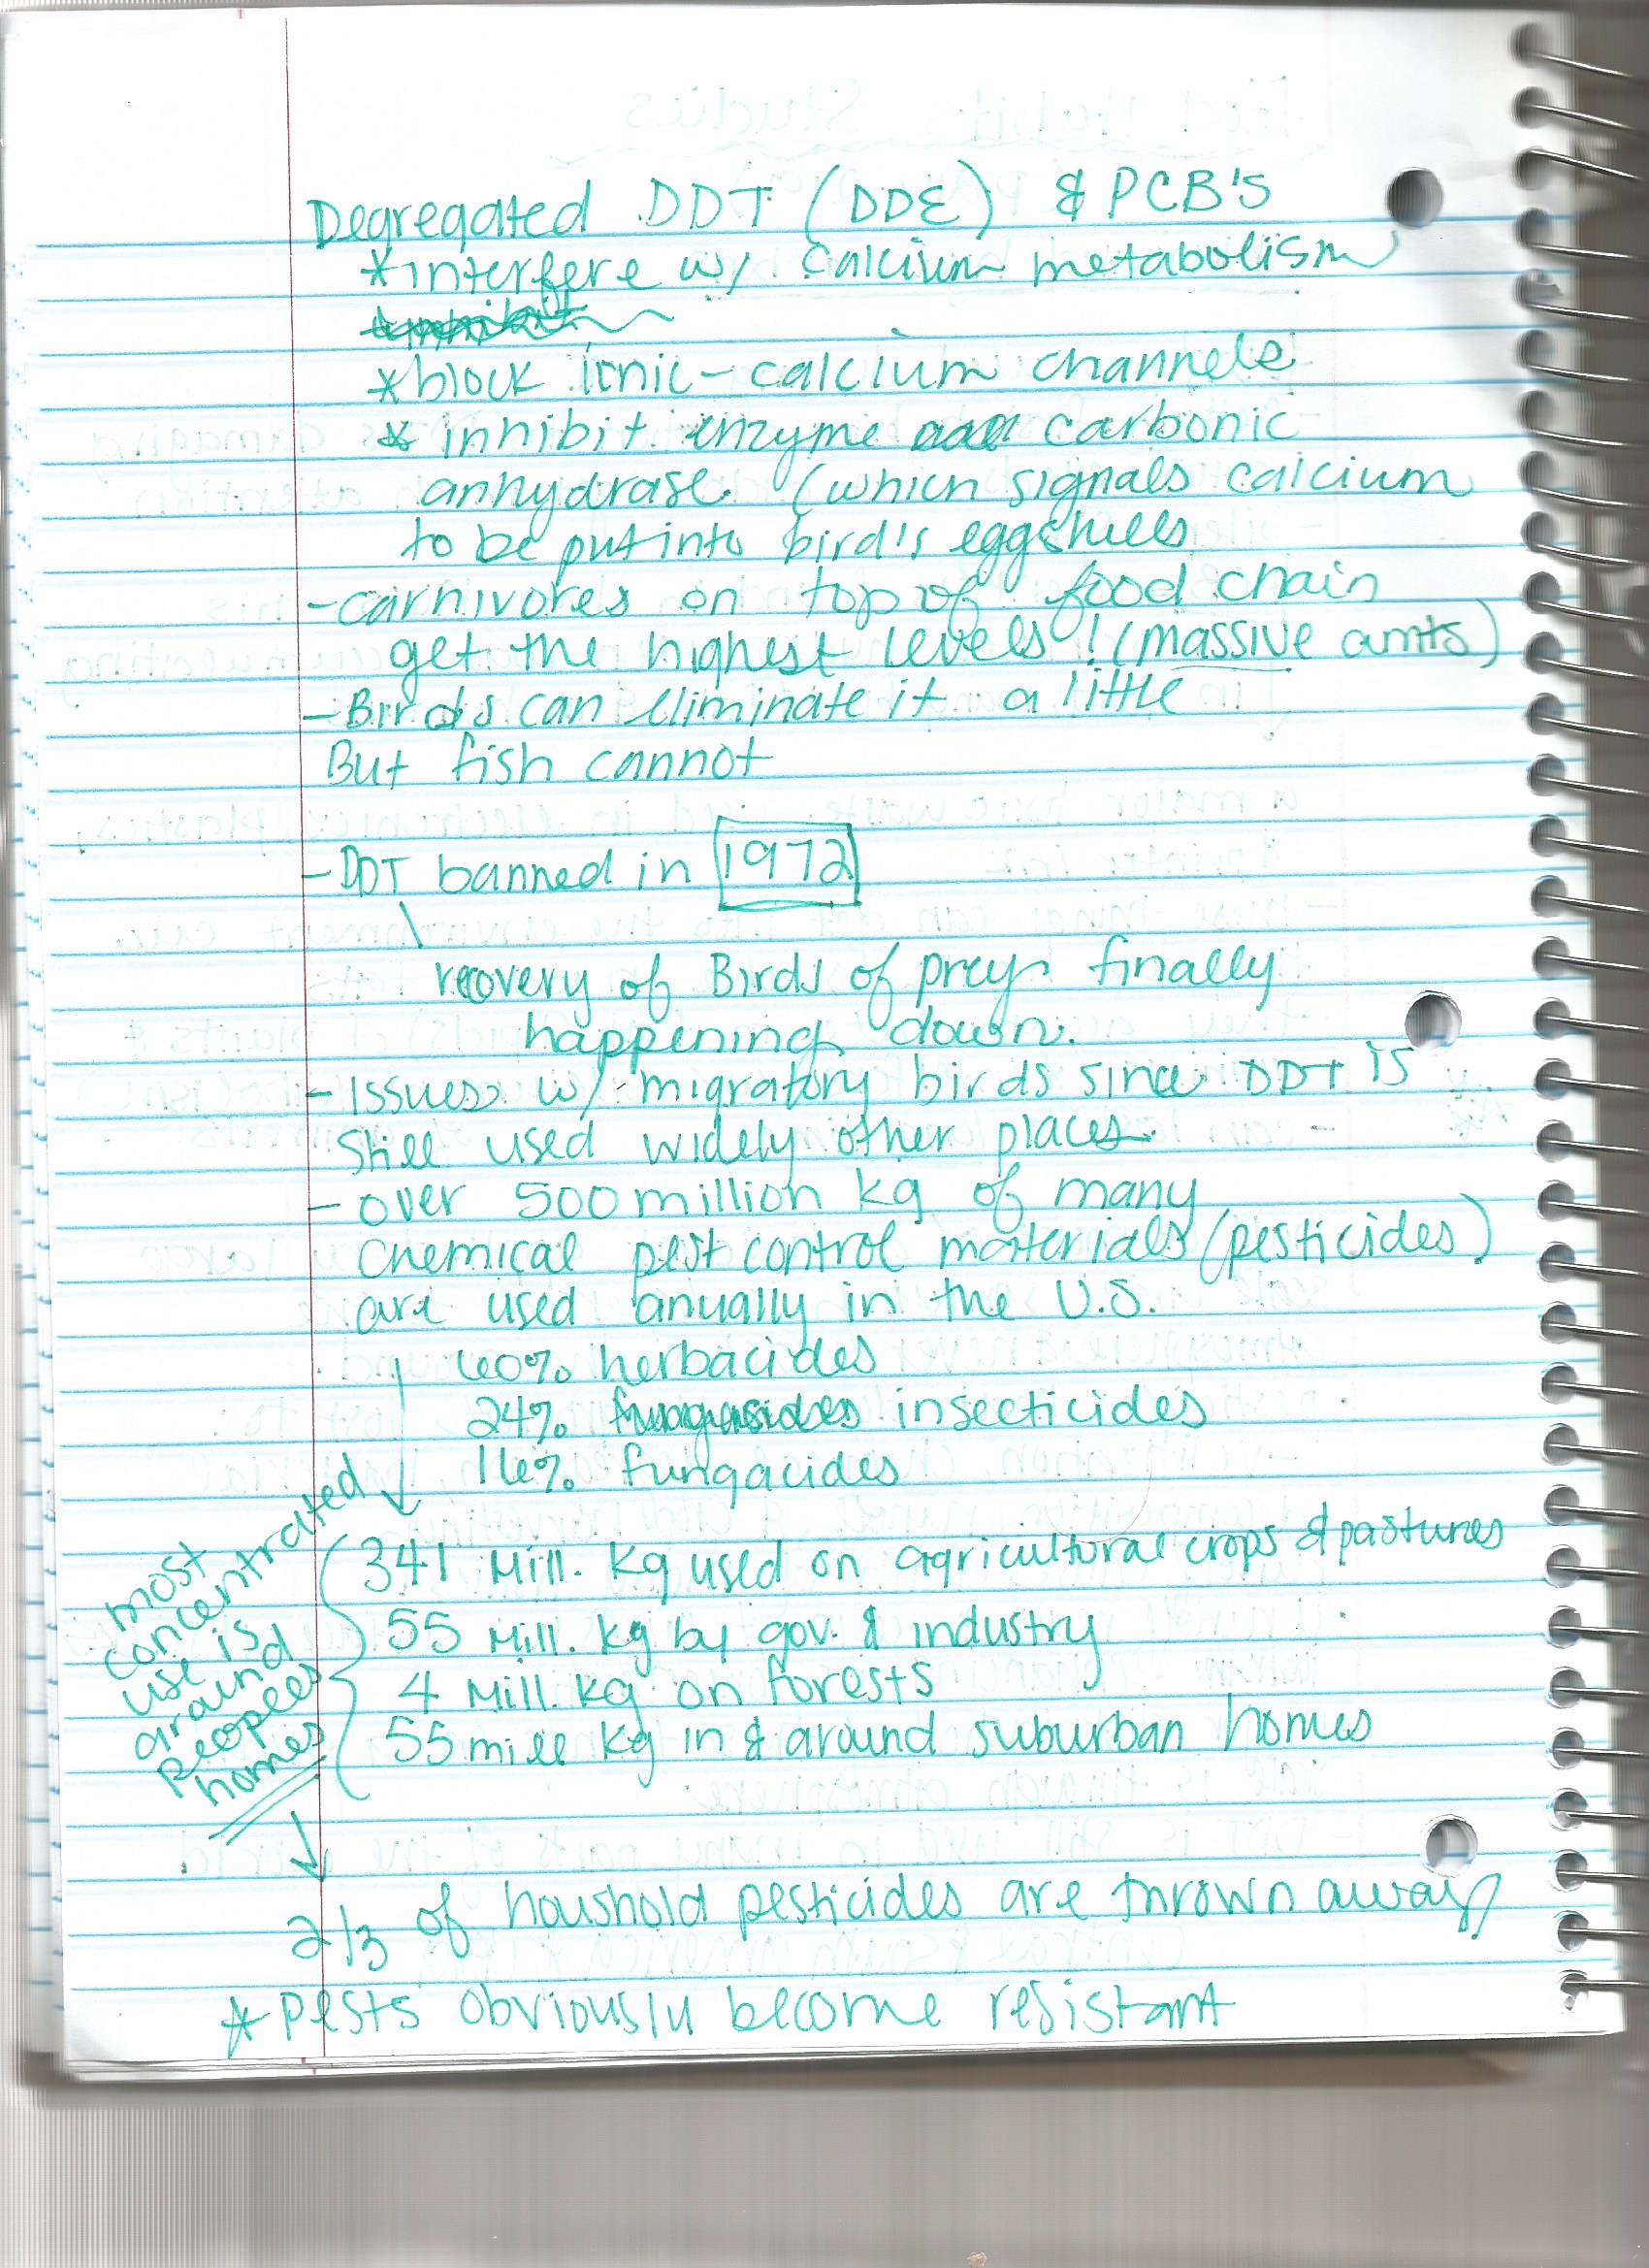 Degregated DDT (DDE) & PCB's
*interfere w/ calcium metabolism
*block ionic-calcium channels
* inhibit enzyme carbonic
anhydrase (which signals calcium
to be put into bird's eggshells
-carnivores on top of food chain
get the highest levels! (massive amts)
-Birds can eliminate it a little
But fish cannot
-DDT banned in 1972
recovery of Birds of prey finally
happening down.
- Issues w/ migratory birds since DDT is
still used widely other places.
- over 500 million kg of many
chemical pest control materials (pesticides)
are used anually in the U.S.
60% herbacides
24% insecticides
16% fungacides
most
concentrated
use is
around
peoples
homes
341 Mill. kg used on agricultural crops & pastures
55 Mill. kg by gov. & industry
4 Mill. kg on forests
55 mill kg in & around suburban homes
2/3 of houshold pesticides are thrown away
* Pests obviously become resistant